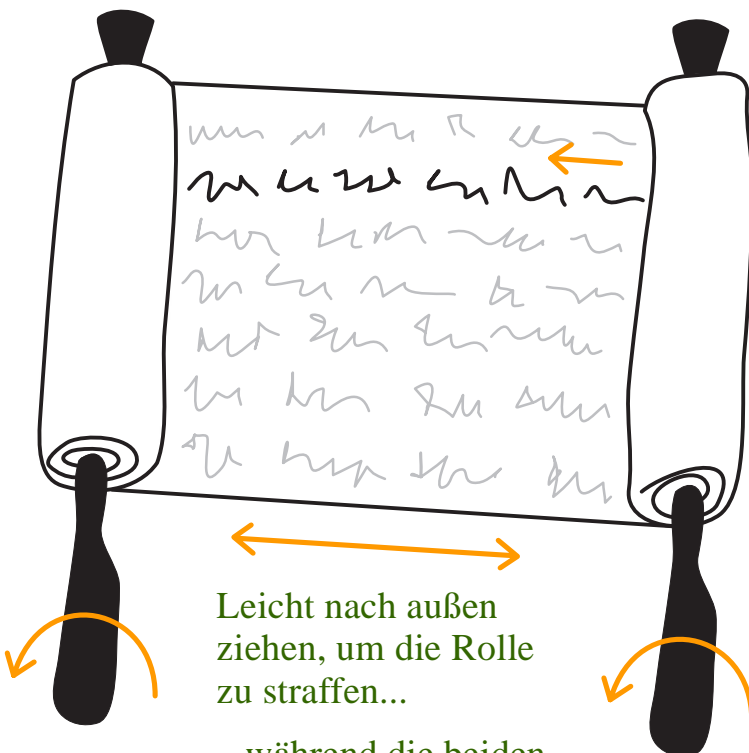 Leicht nach außen
ziehen, um die Rolle
zu straffen...
während die beiden